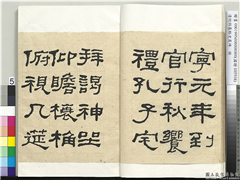 寧元年到
官行秋饗
禮孔子宅
拜謁神坐
仰瞻榱桷
俯視几筵
5